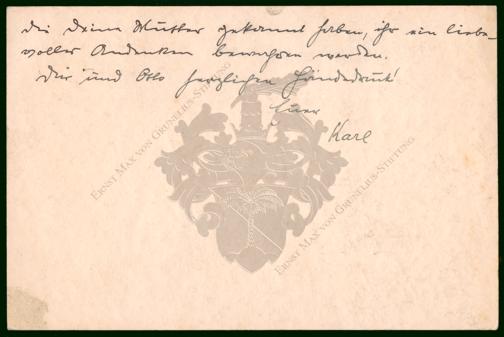 die Deine Mutter gekannt haben, ihr ein liebe-
volles Andenken bewahren werden.
Dir und Otto herzlichen Händedruck!
Euer
Karl
ERNST MAX VON GRUNELIUS-STIFTUNG
ERNST MAX VON GRUNELIUS-STIFTUNG